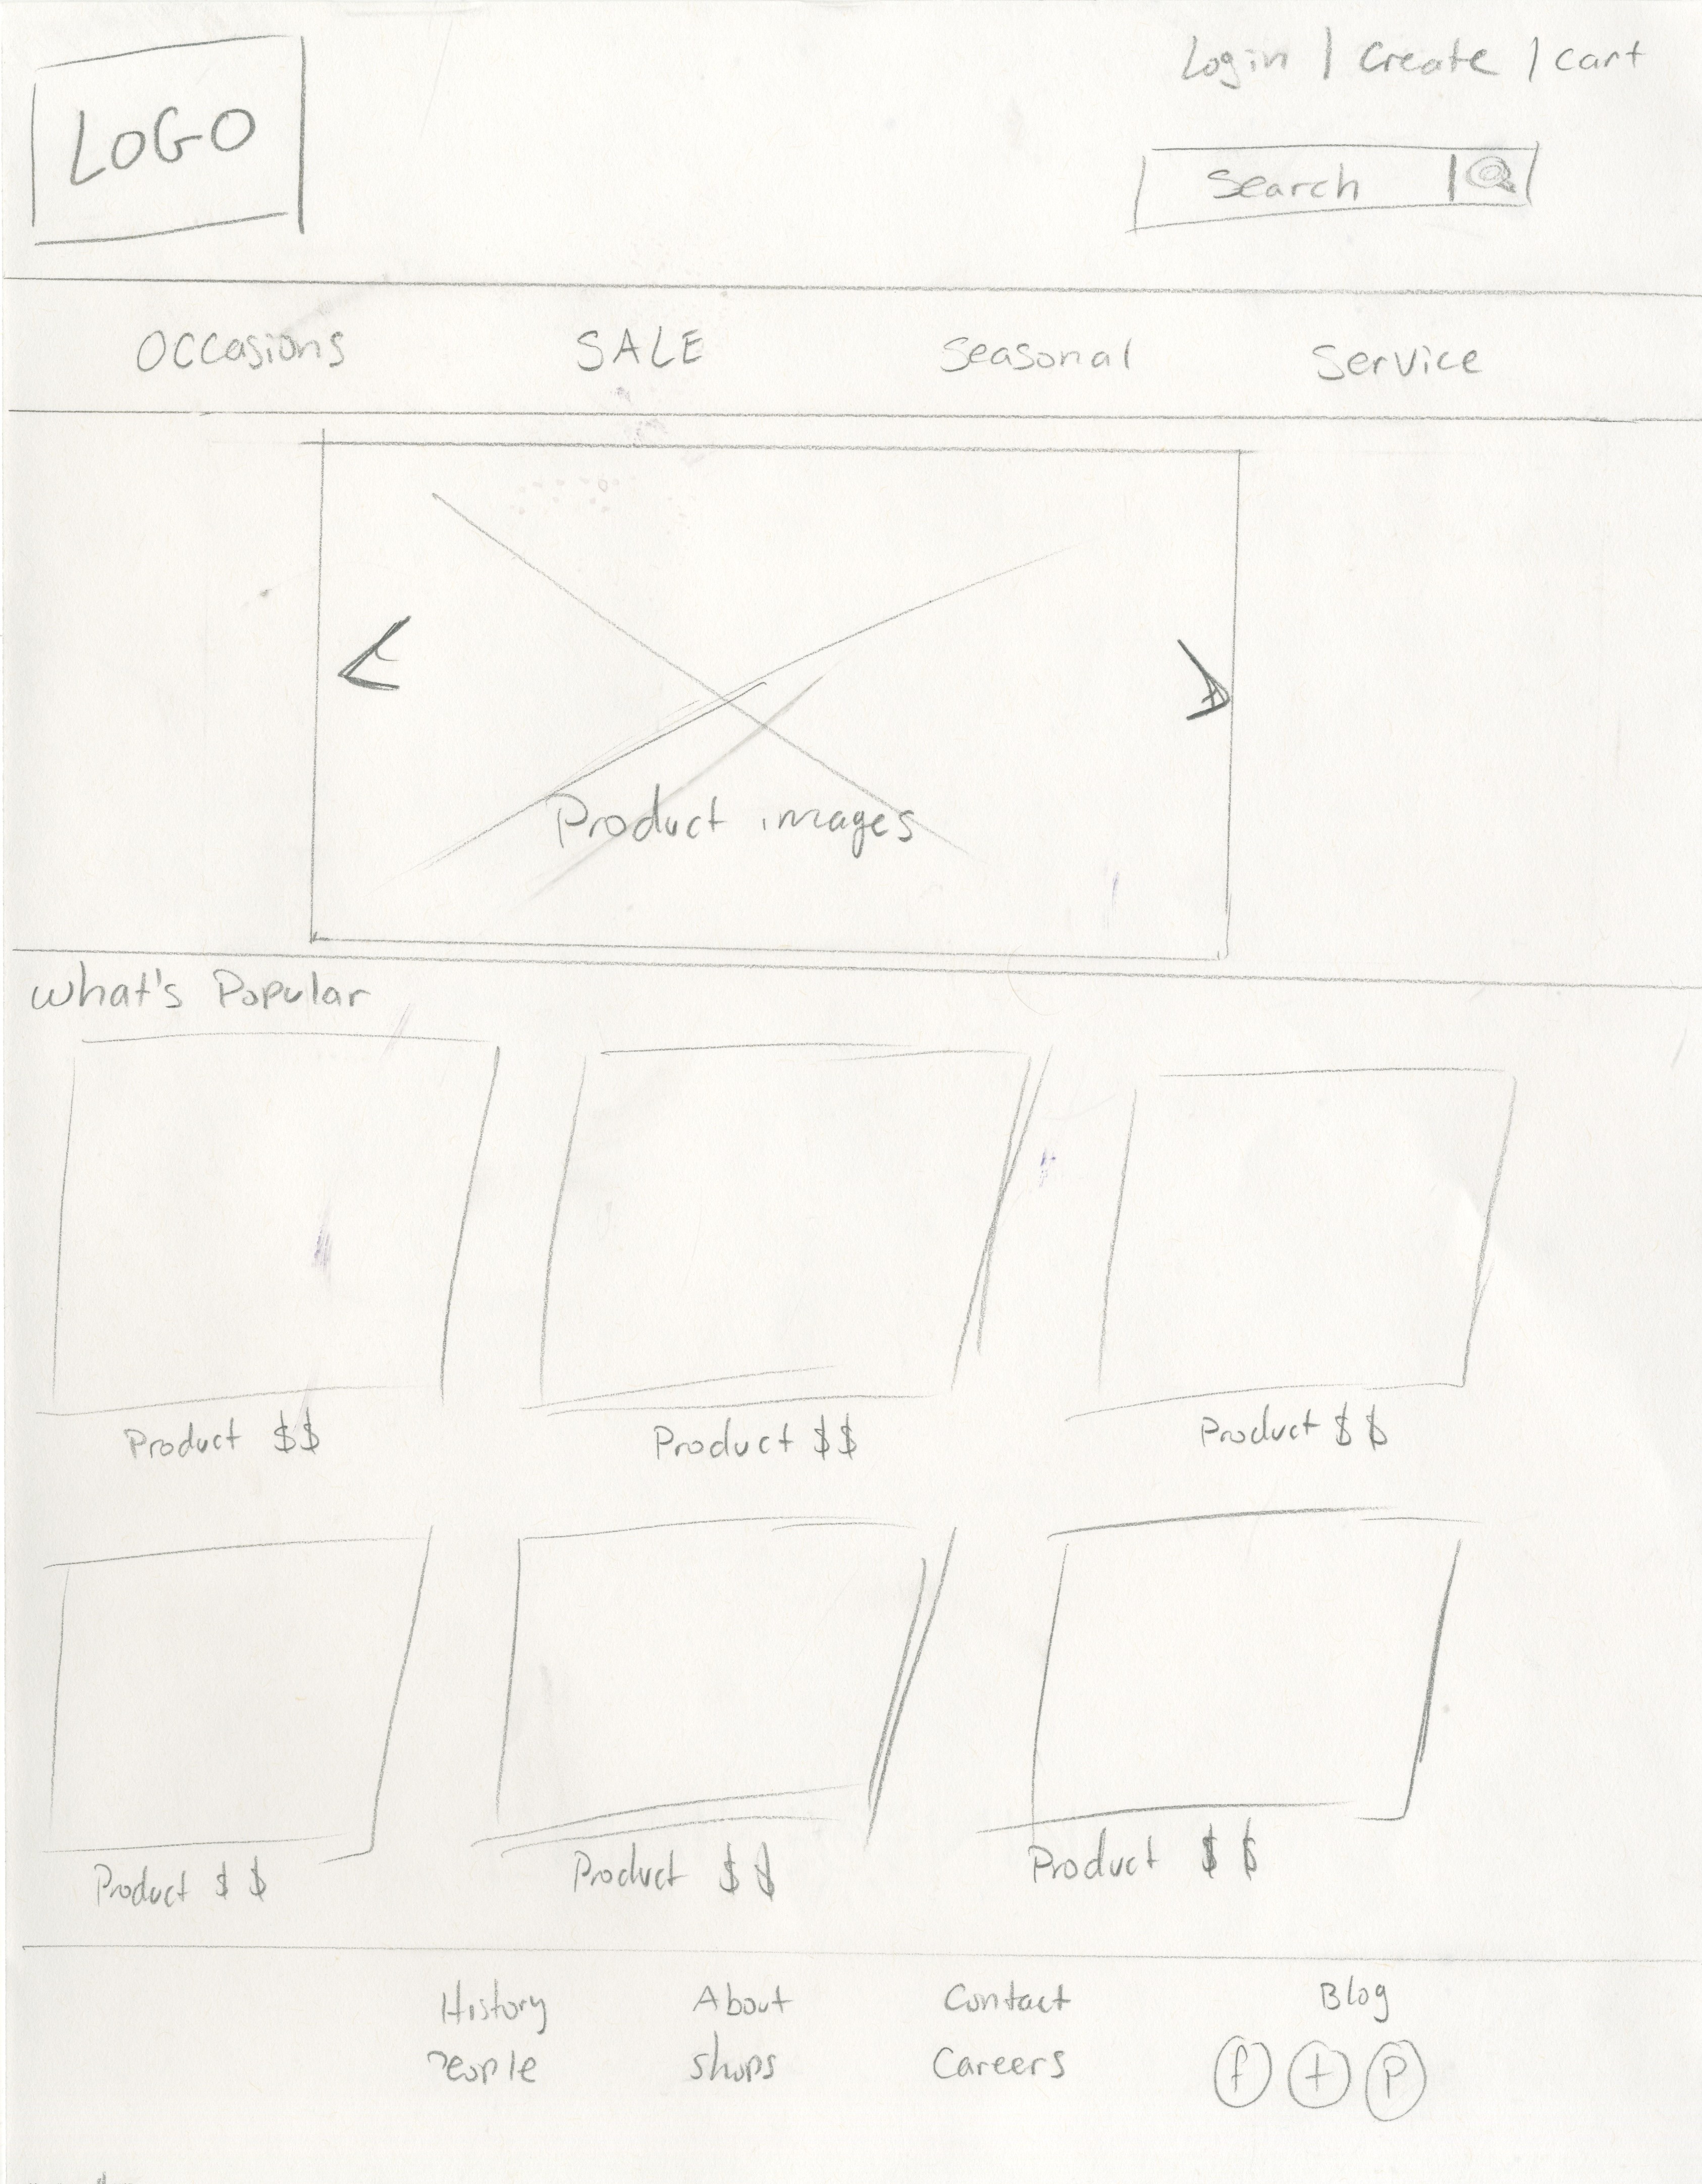 LOGO
Login | Create | Cart
Search
Occasions SALE Seasonal Service
Product images
What's Popular
Product $$ Product $$ Product $$
Product $$ Product $$ Product $$
History About Contact Blog
People Shops Careers f t P